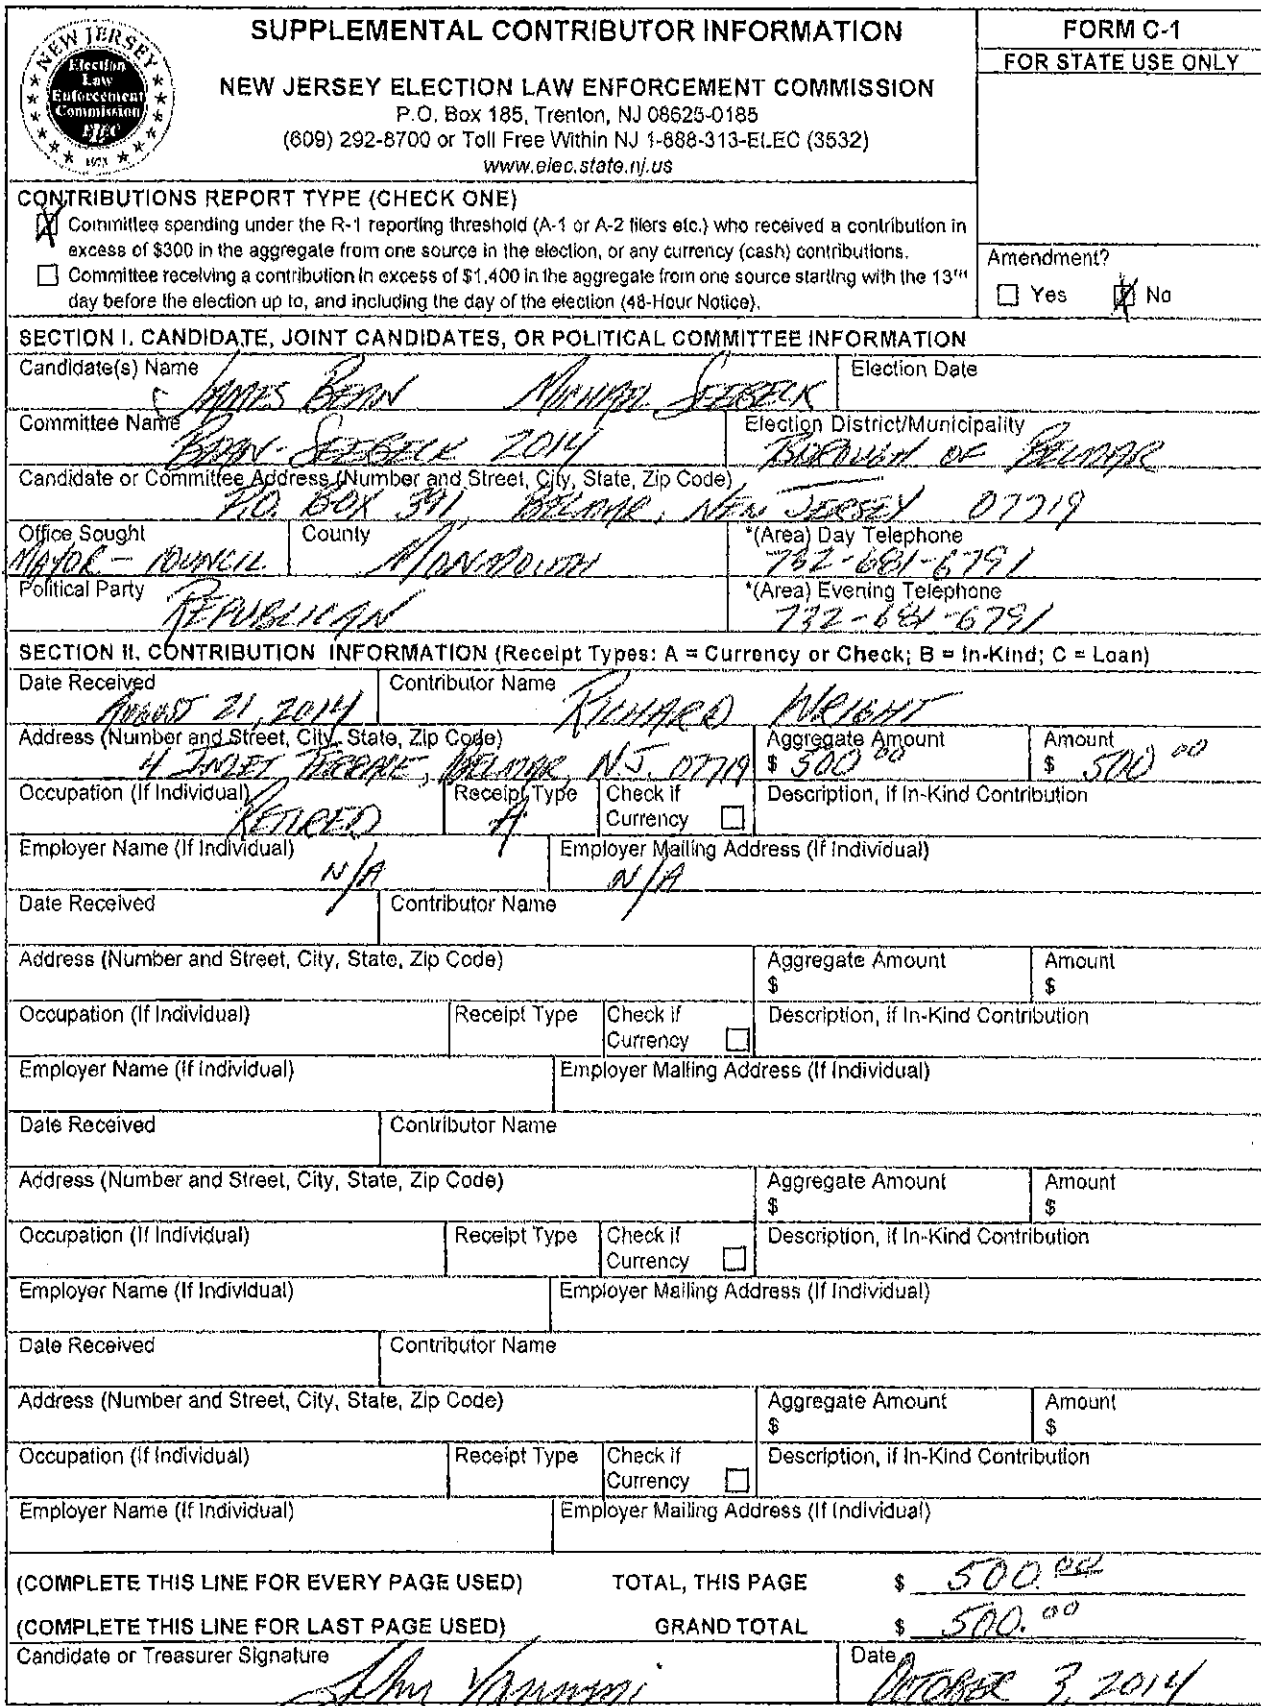 NEW JERSEY
Election
Law
Enforcement
Commission
ELEC
1973
SUPPLEMENTAL CONTRIBUTOR INFORMATION
NEW JERSEY ELECTION LAW ENFORCEMENT COMMISSION
P.O. Box 185, Trenton, NJ 08625-0185
(609) 292-8700 or Toll Free Within NJ 1-888-313-ELEC (3532)
www.elec.state.nj.us
FORM C-1
FOR STATE USE ONLY
CONTRIBUTIONS REPORT TYPE (CHECK ONE)
Committee spending under the R-1 reporting threshold (A-1 or A-2 filers etc.) who received a contribution in
excess of $300 in the aggregate from one source in the election, or any currency (cash) contributions.
Committee receiving a contribution in excess of $1,400 in the aggregate from one source starting with the 13TH
day before the election up to, and including the day of the election (48-Hour Notice).
Amendment?
Yes No
SECTION I. CANDIDATE, JOINT CANDIDATES, OR POLITICAL COMMITTEE INFORMATION
Candidate(s) Name Election Date
JAMES BEAN MICHAEL SEEBECK
Committee Name Election District/Municipality
BEAN-SEEBECK 2014 BOROUGH OF BELMAR
Candidate or Committee Address (Number and Street, City, State, Zip Code)
P.O. BOX 391, BELMAR, NEW JERSEY 07719
Office Sought County *(Area) Day Telephone
MAYOR - COUNCIL MONMOUTH 732-681-6791
Political Party *(Area) Evening Telephone
REPUBLICAN 732-681-6791
SECTION II. CONTRIBUTION INFORMATION (Receipt Types: A = Currency or Check; B = In-Kind; C = Loan)
Date Received Contributor Name
AUGUST 21, 2014 RICHARD WRIGHT
Address (Number and Street, City, State, Zip Code) Aggregate Amount Amount
4 INLET TERRACE, BELMAR, N.J. 07719 $ 500 00 $ 500 00
Occupation (If Individual) Receipt Type Check if Description, if In-Kind Contribution
RETIRED A Currency
Employer Name (If Individual) Employer Mailing Address (If Individual)
N/A N/A
Date Received Contributor Name
Address (Number and Street, City, State, Zip Code) Aggregate Amount Amount
$ $
Occupation (If Individual) Receipt Type Check if Description, if In-Kind Contribution
Currency
Employer Name (If Individual) Employer Mailing Address (If Individual)
Date Received Contributor Name
Address (Number and Street, City, State, Zip Code) Aggregate Amount Amount
$ $
Occupation (If Individual) Receipt Type Check if Description, if In-Kind Contribution
Currency
Employer Name (If Individual) Employer Mailing Address (If Individual)
Date Received Contributor Name
Address (Number and Street, City, State, Zip Code) Aggregate Amount Amount
$ $
Occupation (If Individual) Receipt Type Check if Description, if In-Kind Contribution
Currency
Employer Name (If Individual) Employer Mailing Address (If Individual)
(COMPLETE THIS LINE FOR EVERY PAGE USED) TOTAL, THIS PAGE $ 500.00
(COMPLETE THIS LINE FOR LAST PAGE USED) GRAND TOTAL $ 500.00
Candidate or Treasurer Signature Date
John OCTOBER 3, 2014